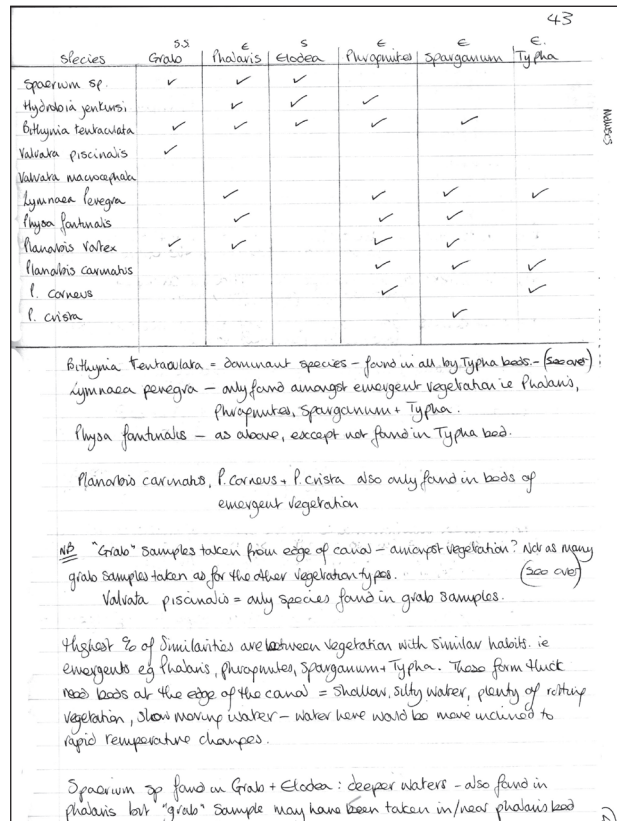 43
S.S. E S E E E.
Species Grab Phalaris Elodea Phragmites Sparganum Typha
Spaerium sp. ✓ ✓ ✓
Hydrobia jenkinsi ✓ ✓ ✓
Bithynia tentaculata ✓ ✓ ✓ ✓ ✓
Valvata piscinalis ✓
Valvata macrocephala
Lymnaea Peregra ✓ ✓ ✓ ✓
Physa fontinalis ✓ ✓ ✓
Planorbis Vortex ✓ ✓ ✓ ✓
Planorbis carinatus ✓ ✓ ✓
P. corneus ✓ ✓
P. crista ✓
Bithynia Tentaculata = dominant species - found in all by Typha beds. - (see over)
Lymnaea peregra - only found amongst emergent vegetation ie Phalaris,
Phragmites, Sparganum + Typha.
Physa fontinalis - as above, except not found in Typha bed.
Planorbis carinatus, P. Corneus + P. crista also only found in beds of
emergent vegetation
NB "Grab" samples taken from edge of canal - amongst vegetation? Not as many
grab samples taken as for the other vegetation types. (see over)
Valvata piscinalis = only species found in grab samples.
Highest % of Similarities are between vegetation with similar habits. ie
emergents eg Phalaris, phragmites, Sparganum + Typha. These form thick
reed beds at the edge of the canal = shallow, silty water, plenty of rotting
vegetation, slow moving water - water here would be more inclined to
rapid temperature changes.
Spaerium sp found in Grab + Elodea : deeper waters - also found in
phalaris but "grab" sample may have been taken in/near phalaris bed